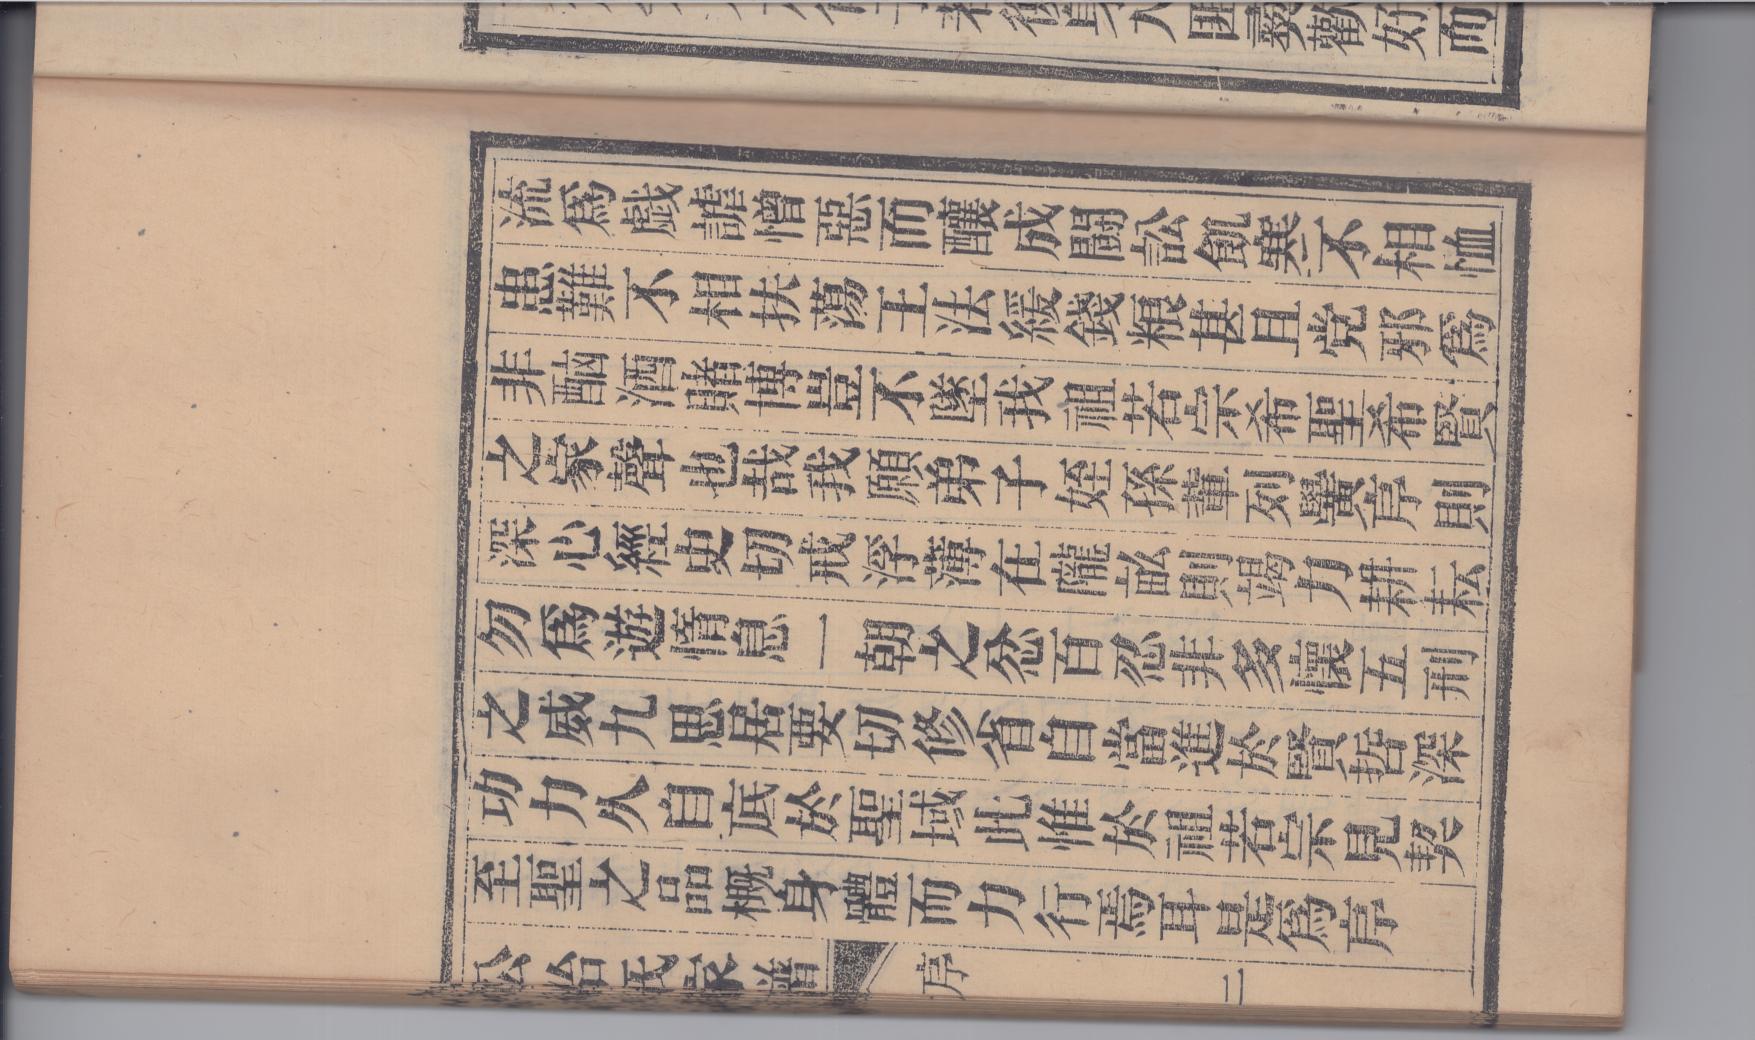 歡好而
流爲戲謔憎惡而釀成鬪訟飢寒不相恤
患難不相扶蕩王法緩錢粮甚且党邪爲
非酗酒賭博豈不墜我祖若宗希聖希賢
之家聲也哉我願弟子姪孫輩列黌序則
深心經史切戒浮薄在隴畝則竭力耕耘
勿爲遊惰息一朝之忿自忍非多懷五刑
之威九思居要切修省自當進於賢哲深
功力久自底於聖域此惟於祖若宗見契
至聖之品概身體而力行焉耳是爲序
公冶氏家譜 序 二